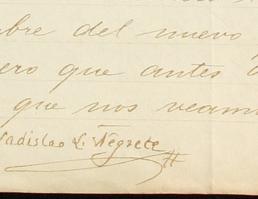 bre del nuevo
ero que antes
que nos veamo
ladislao L. Negrete